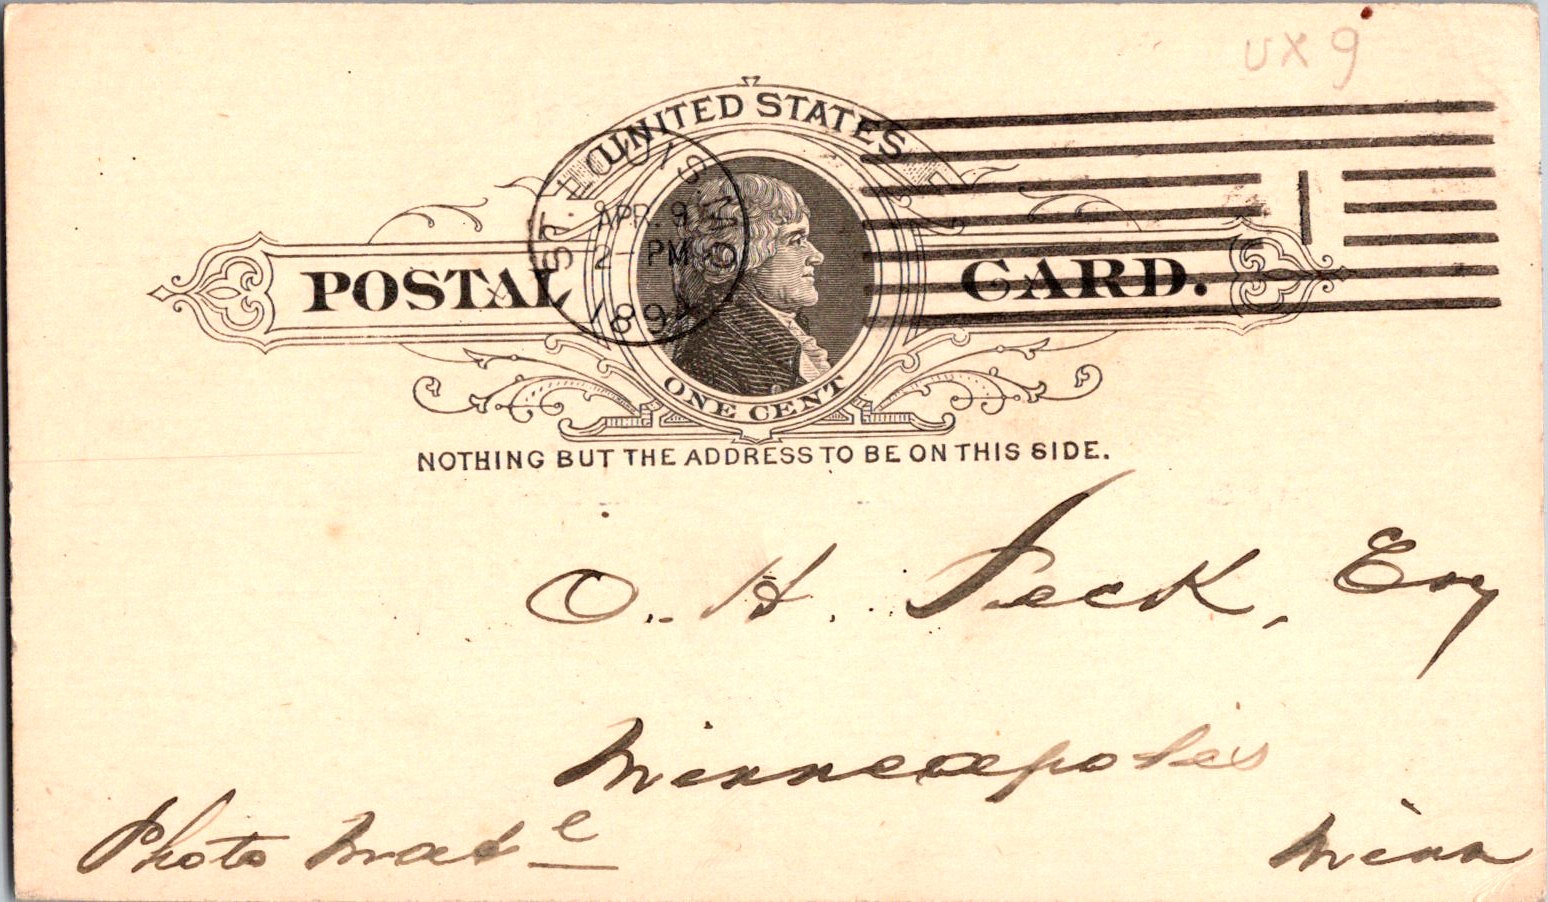 UX9
UNITED STATES
ST. LOUIS, MO
APR. 9
2- PM
189
POSTAL CARD.
ONE CENT
NOTHING BUT THE ADDRESS TO BE ON THIS SIDE.
O. H. Peck, Esq
Minneapolis
Photo Mat^e Minn